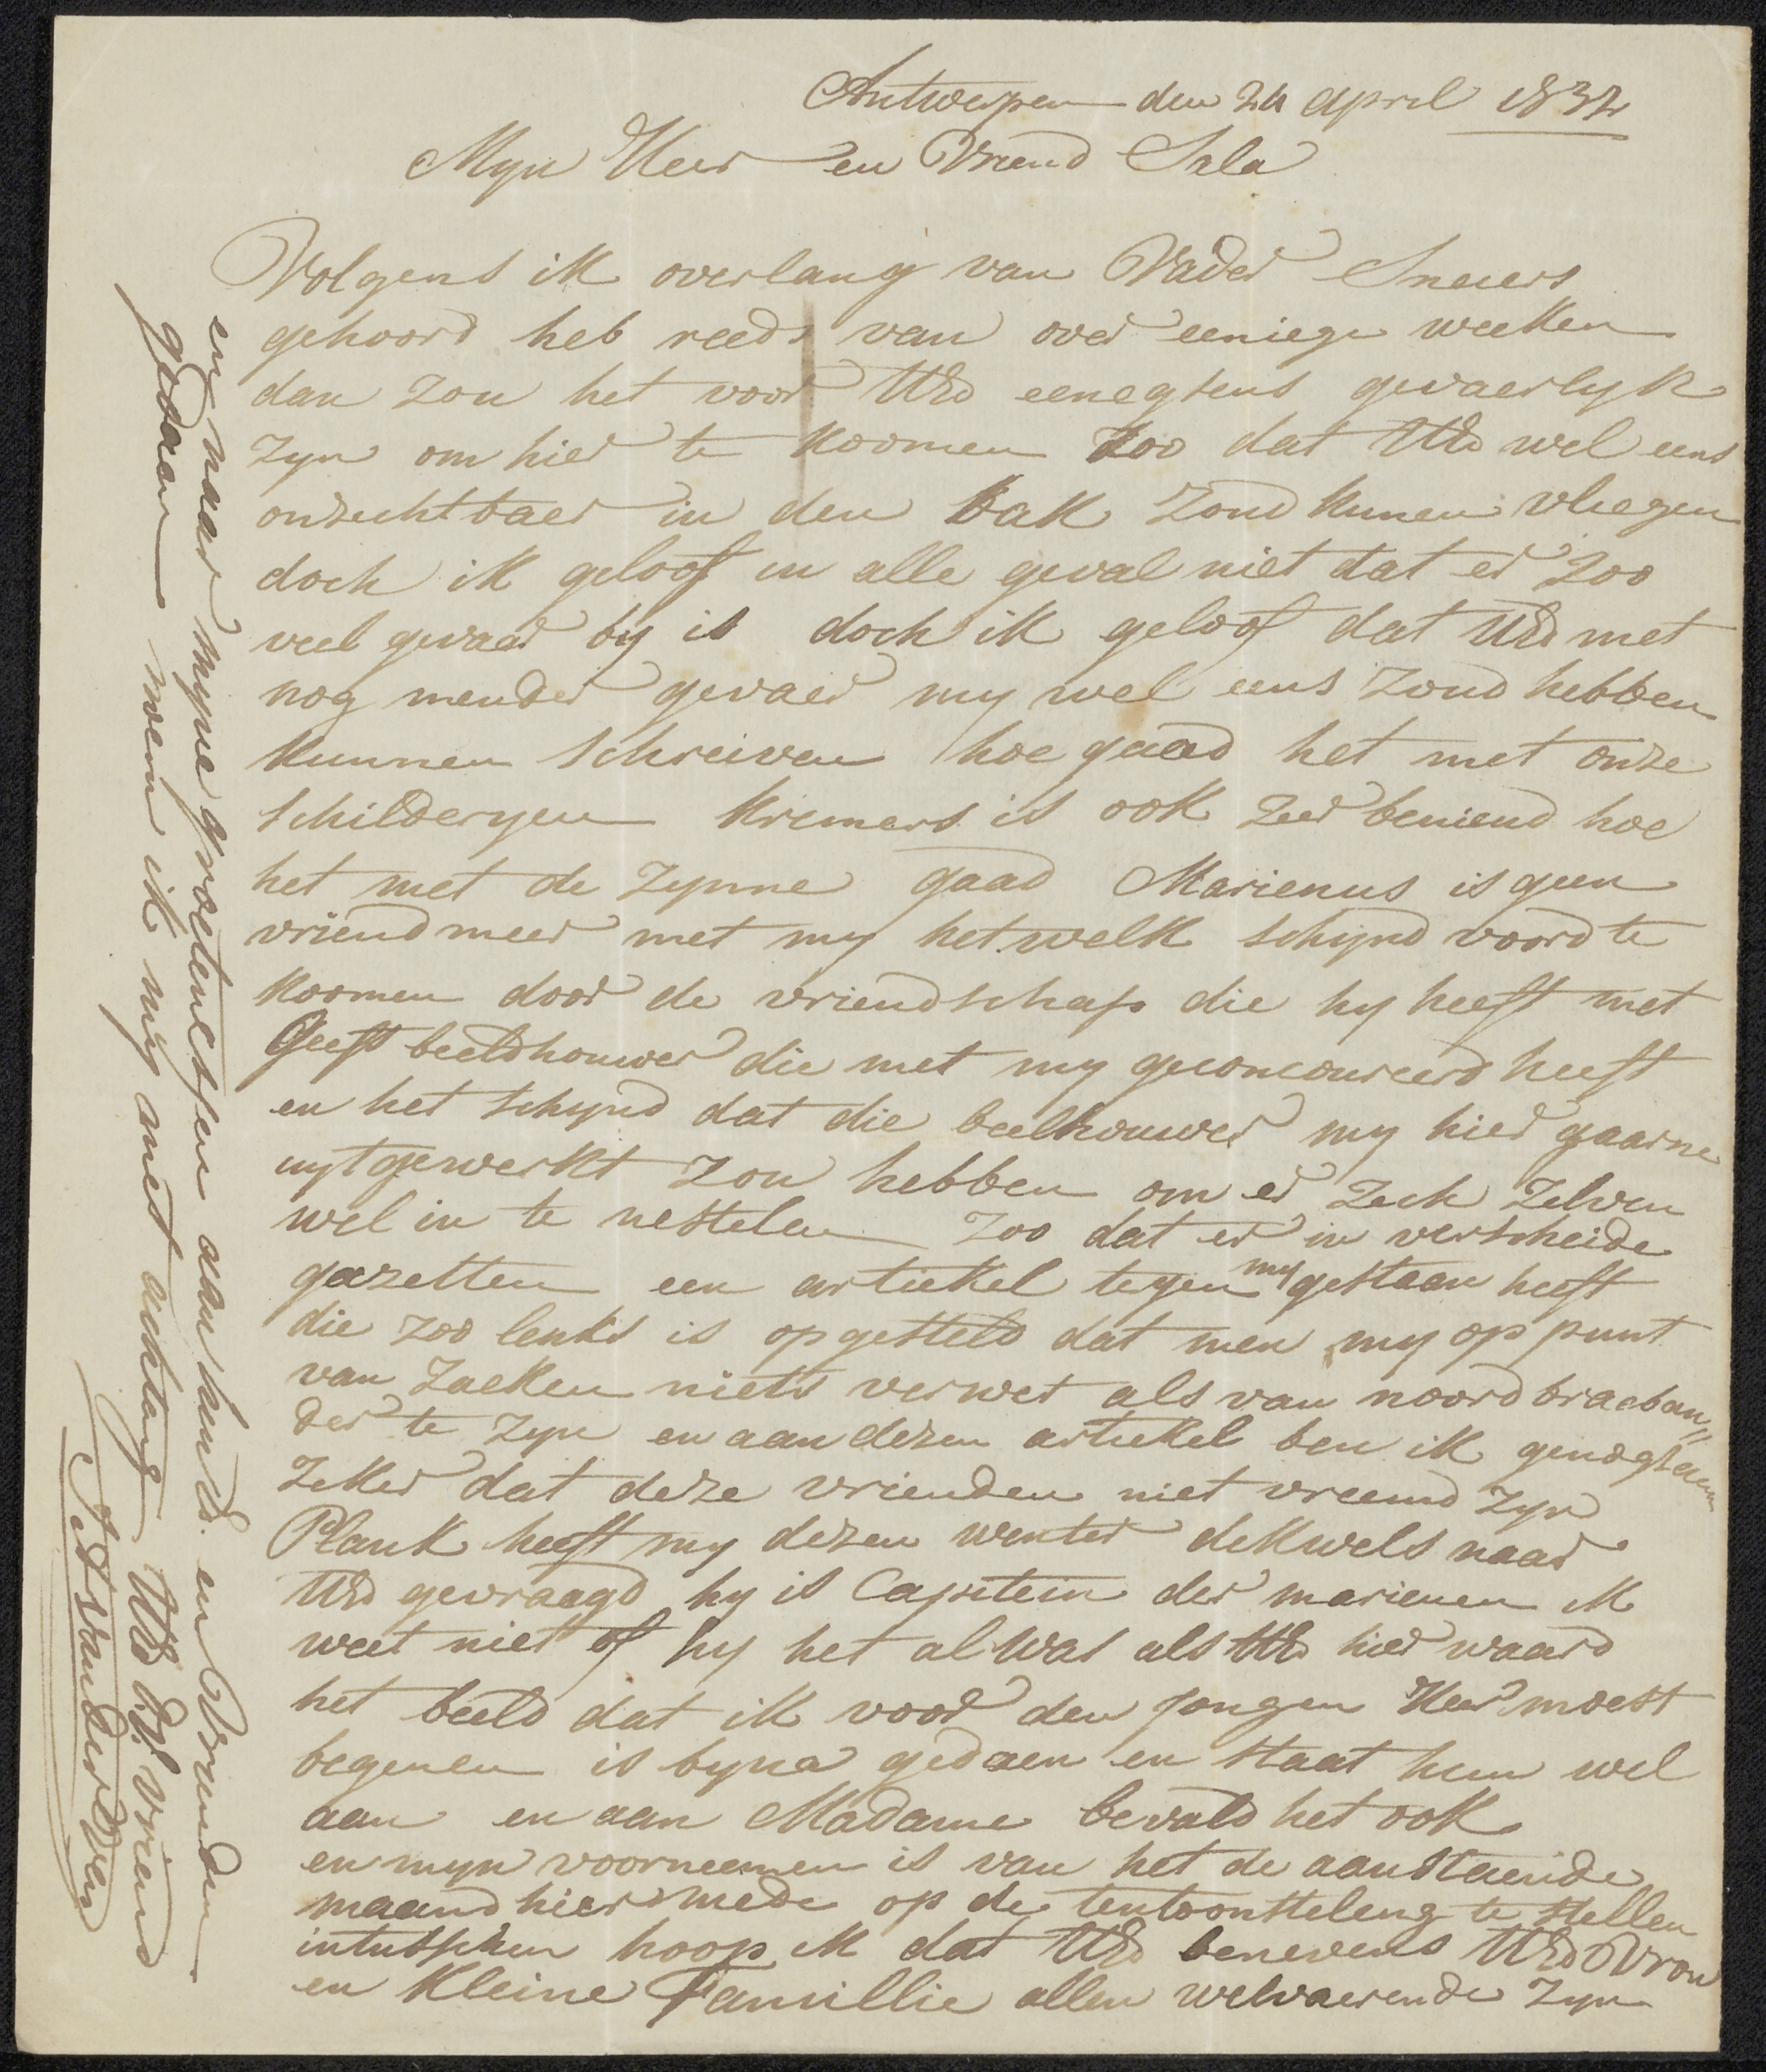 Antwerpen den 24 april 1832
Myn Heer en Vriend Sala
Volgens ik overlang van Vader Sneeers
gehoord heb reeds van over eeniege weeken
dan zou het voor UEd eenegsens gevaerlyk
zyn om hier te koomen zoo dat UEd wel eens
onzechtbaer in den bak zoud kunen vliegen
doch ik geloof in alle geval niet dat er zoo
veel gevaar by is doch ik geloof dat UEd met
nog mender gevaer my wel eens zoud hebben
kunnen schreiven hoe gaad het met onze
schilderyen Kremers is ook zeer beniend hoe
het met de zynne gaad Marienus is geen
vriend meer met my het welk schynd voord te
koomen door de vriendschap die hy heeft met
Geefs beeldhouwer die met my geconcoureerd heeft
en het schynd dat die beelhouwer my hier gaarne
uytgewerkt zou hebben om er zech zelven
wel in te nestelen zoo dat er in verscheide
gazetten een artiekel tegen my gestaan heeft
die zoo lenks is opgesteld dat men my op punt
van zaeken niets verwet als van noord braeban"
der te zyn en aan dezen artiekel ben ik genogsaem
zeker dat deze vrienden niet vreemd zyn
Plank heeft my dezen wenter dekwels naar
UEd gevraagd hy is Capitein der marienen ik
weet niet of hy het al was als UEd hier waard
het beeld dat ik voor den jongen Heer moest
begenen is byna gedaen en staat hem wel
aan en aan Madame bevald het ook
en myn voorneemen is van het de aanstaende
maand hier mede op de tentoonsteleng te stellen
intusschen hoop ik dat UEd benevens UEd Vrou
en kleine Famillie allen welvaerende zyn
en naar myne groetenessen aan hun Ed. en Vrienden
gedaan noem ik my met achtang UEd Dr. vriend
J A Van der Ven